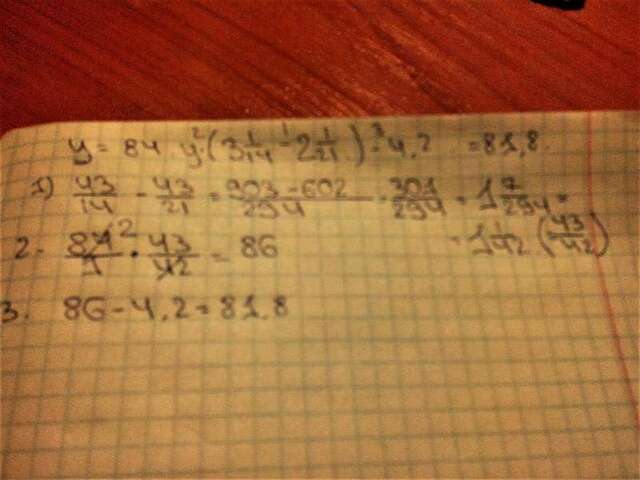 y = 84 y · (3 1/14 - 2 1/21) - 4,2 = 81,8
1) 43/14 - 43/21 = 903-602/294 = 301/294 = 1 7/294 =
= 1 1/42 (43/42)
2. 84/1 · 43/42 = 86
3. 86 - 4,2 = 81,8